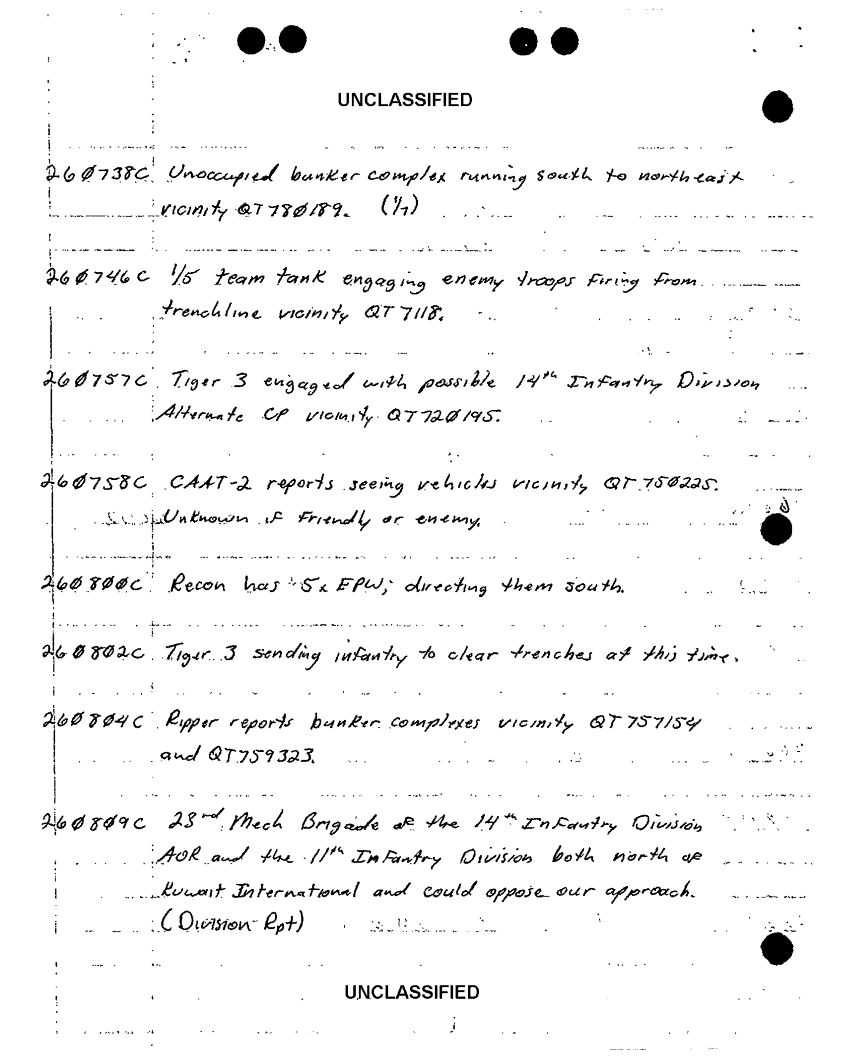 UNCLASSIFIED
260738C Unoccupied bunker complex running south to northeast
vicinity QT780189. (1/7)
260746C 1/5 team tank engaging enemy troops firing from
trenchline vicinity QT7118.
260757C Tiger 3 engaged with possible 14th Infantry Division
Alternate CP vicinity QT720195.
260758C CAAT-2 reports seeing vehicles vicinity QT 750225.
Unknown if friendly or enemy.
260800C Recon has 5x EPW; directing them south.
260802C Tiger 3 sending infantry to clear trenches at this time.
260804C Ripper reports bunker complexes vicinity QT757154
and QT759323.
260809C 23rd Mech Brigade of the 14th Infantry Division
AOR and the 11th Infantry Division both north of
Kuwait International and could oppose our approach.
(Division Rpt)
UNCLASSIFIED